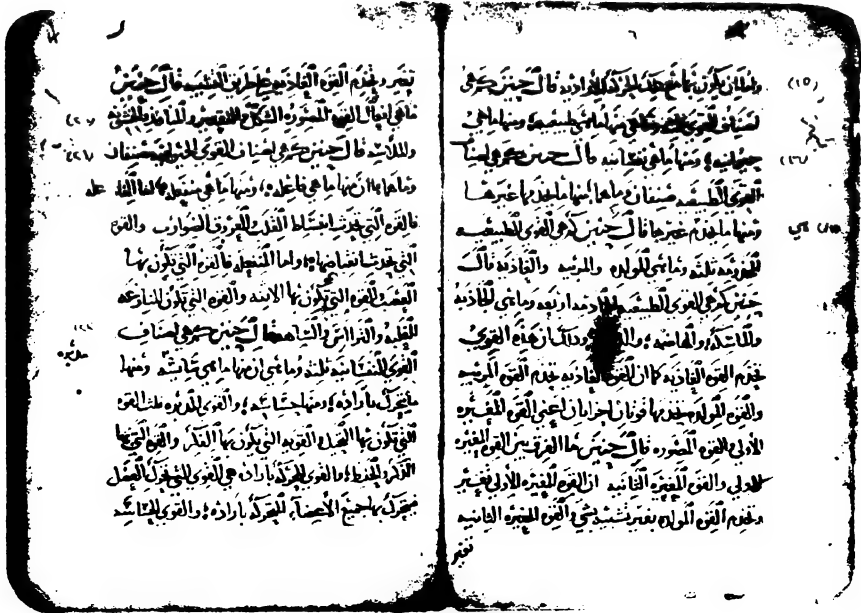 ولما ان تكون بها جميع هذه الحركة الارادية قال حنين كم هي
اصناف القوى وما هي منها ما هي طبيعية ومنها ما هي
حيوانيه ومنها ما هي نفسانيه قال حنين كم هي اصناف
القوى الطبيعيه صنفان وما هما منها ما يخدمها غيرها
ومنها ما يخدم غيرها قال حنين كم هي القوى الطبيعيه
المخدومه ثلثه وما هي المولده والمربيه والغاذيه قال
حنين كم هي القوى الطبيعيه الخادمه اربعه وما هي الجاذبه
والماسكه والهاضمه والدافعه وذلك ان هذه القوى
تخدم القوه الغاذيه كما ان القوه الغاذيه تخدم القوه المربيه
والقوه المولده يخدمها قوتان اخراوان اعني القوه المغيره
الأولى والقوه المصوره قال حنين ما الفرق بين القوه المغيره
الاولى والقوه المغيره الثانيه ان القوه المغيره الاولى تغير
وتخدم القوه المولده بغير تشبيه بشي والقوه المغيره الثانيه
تغير
تغير وتخدم القوه الغاذيه على طريق التشبيه قال حنين
ما هي افعال القوه المصوره الشكل والتقعير والملاسه والخشونه
والملاسه قال حنين كم هي اصناف القوى الحيوانيه صنفان
وما هما ان منها ما هي فاعله ومنها ما هي منفعله اما الفاعله
فالقوه التي يحدث انبساط القلب والعروق الضوارب والقوه
التي تحدث انقباضها واما المنفعله فالقوه التي يكون بها
الغضب والقوه التي يكون بها الانفه والقوه التي تكون المنازعه
للغلبه والتراؤس والنباهه قال حنين كم هي اصناف
القوى النفسانيه ثلثه وما هي ان منها ما هي ساسه ومنها
ما يحرك باراده ومنها حساسه والقوى المدبره ثلث القوه
التي يكون بها التخيل والقوه التي يكون بها الفكر والقوه التي بها
الذكر والحفظ والقوى المحركه باراده هي القوى التي تحرك العضل
فيتحرك بها جميع الأعضا المتحركه باراده والقوى الحساسه
مدبره